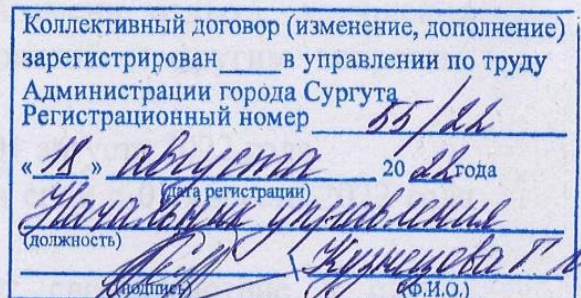 Коллективный договор (изменение, дополнение)
зарегистрирован_____в управлении по труду
Администрации города Сургута
Регистрационный номер 55/22
«18» августа 2022года
(дата регистрации)
Начальник управления
(должность)
Кузнецова Г.
(подпись) (Ф.И.О.)